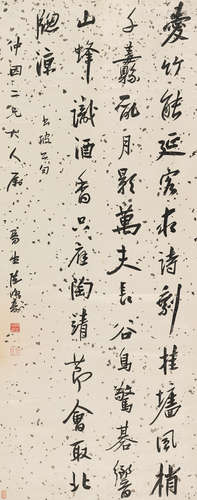 愛竹能延客求詩剩挂墻風梢
千纛亂月影萬夫長谷鳥驚碁響
山蜂識酒香只應陶靖節會取北
窗涼 坡句
仲因二兄大人屬
陸